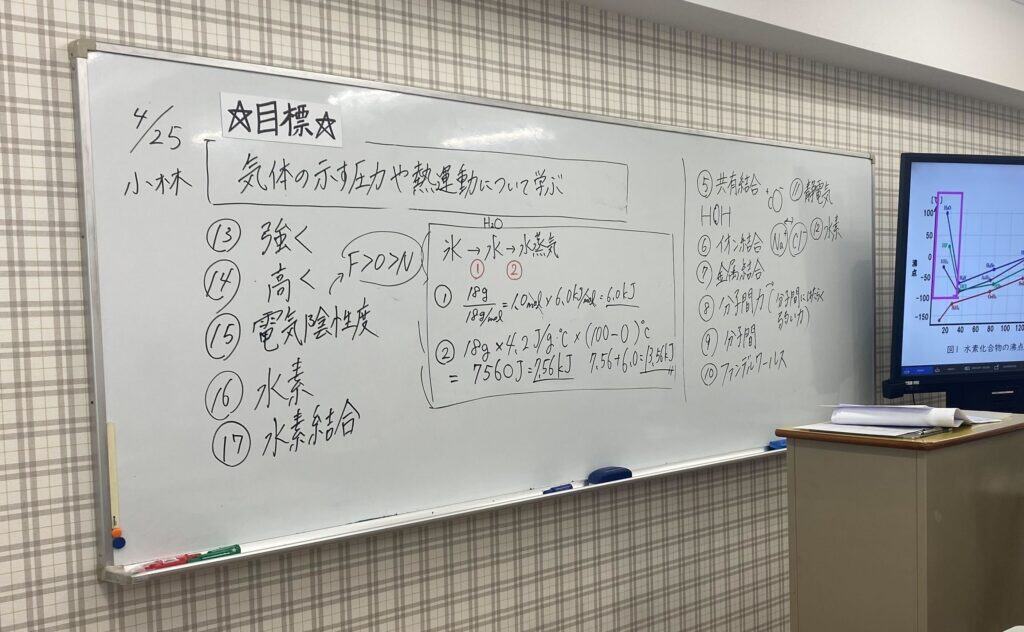 4/25
小林
☆目標☆
気体の示す圧力や熱運動について学ぶ
⑬ 強く
⑭ 高く
F>O>N
⑮ 電気陰性度
⑯ 水素
⑰ 水素結合
H₂O
氷→水→水蒸気
① ②
① 18g/18g/mol=1.0mol×6.0kJ/mol=6.0kJ
② 18g×4.2J/g・℃×(100-0)℃
=7560J=7.56kJ 7.56+6.0=13.56kJ
⑤ 共有結合
HOH
⑥ イオン結合 Na⁺ Cl⁻
⑦ 金属結合
⑧ 分子間力(分子間にはたらく弱い力)
⑨ 分子間
⑩ ファンデルワールス
⑪ 静電気
⑫ 水素
[℃]
100
50
0
-50
-100
-150
沸点
H₂O
20 40 60 80 100 120
図1 水素化合物の沸点